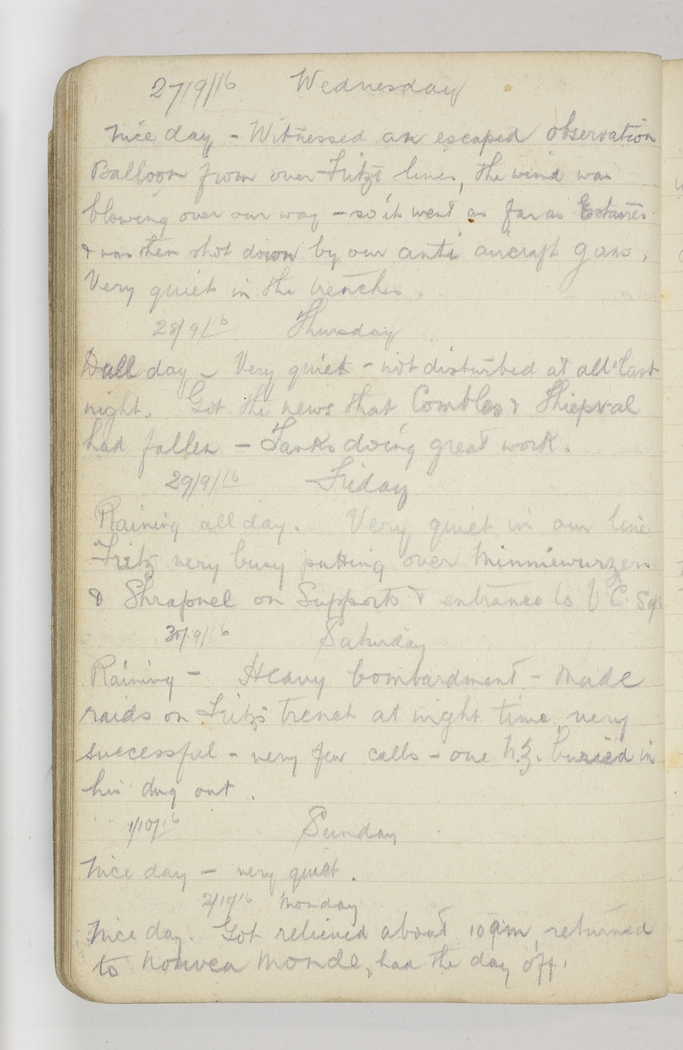 27/9/16 Wednesday
Nice day - Witnessed an escaped observation
Balloon from over Fritz's lines, the wind was
blowing over our way - so it went as far as Estaires
& was then shot down by our anti aircraft guns.
Very quiet in the trenches.
28/9/16 Thursday
Dull day - Very quiet - not disturbed at all last
night. Got the news that Combles & Thiepval
had fallen - Tanks doing great work.
29/9/16 Friday
Raining all day. Very quiet in our line
Fritz very busy putting over Minniewurzers
& Shrapnel on Supports & entrance to V.C. Sap
30/9/16 Saturday
Raining - Heavy bombardment - Made
raids on Fritz's trench at night time, very
successful - very few calls - one N.Z. buried in
his dug out.
1/10/16 Sunday
Nice day - very quiet.
2/10/16 Monday
Nice day. Got relieved about 10 am, returned
to Nouvea Monde, had the day off.